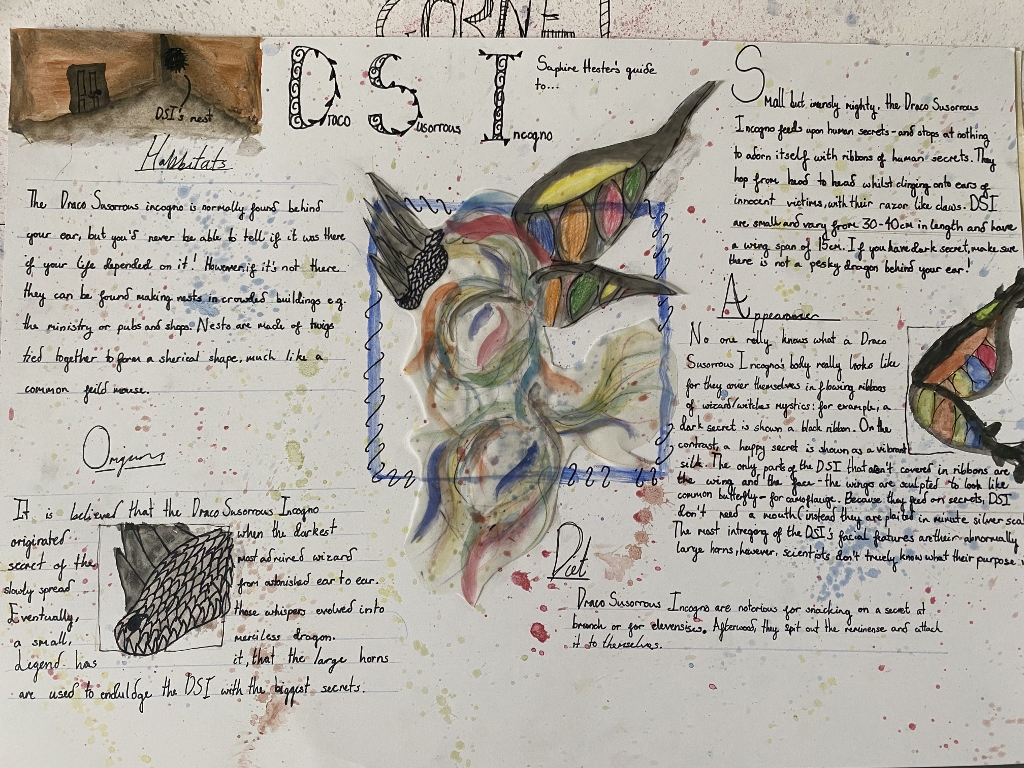 CORNEL
DSI's nest
Draco Susorrous Incogno
Saphire Hester's guide
to...
Habbitats
The Draco Susorrous incogno is normally found behind
your ear, but you'd never be able to tell if it was there
if your life depended on it! However if it's not there
they can be found making nests in crowded buildings e.g.
the ministry or pubs and shops. Nests are made of twigs
tied together to form a sherical shape, much like a
common feild mouse.
Origins
It is believed that the Draco Susorrous Incogno
originated when the darkest
secret of the most admired wizard
slowly spread from astonished ear to ear.
Eventually, those whispers evolved into
a small, merciless dragon.
Legend has it, that the large horns
are used to enduldge the DSI with the biggest secrets.
Small but imensly mighty, the Draco Susorrous
Incogno feeds upon human secrets - and stops at nothing
to adorn itself with ribbons of human secrets. They
hop from head to head whilst clinging onto ears of
innocent victims, with their razor like claws. DSI
are small and vary from 30-40cm in length and have
a wing span of 15cm. If you have dark secret, make sure
there is not a pesky dragon behind your ear!
Appearance
No one relly knows what a Draco
Susorrous Incogno's body really looks like
for they cover themselves in flowing ribbons
of wizard/witches mystics: for example, a
dark secret is shown a black ribbon. On the
contrast, a happy secret is shown as a vibrant
silk. The only parts of the DSI that aren't covered in ribbons are
the wing and the face - the wings are sculpted to look like
common butterfly - for camoflauge. Because they feed on secrets, DSI
don't need a mouth (instead they are plaited in minute silver scal
The most intregorg of the DSI's facial features are their abnormally
large horns, however, scientists don't truely know what their purpose
Diet
Draco Susorrous Incogno are notorious for snacking on a secret at
branch or for elevensises. Afterwood, they spit out the reminense and attach
it to themselves.